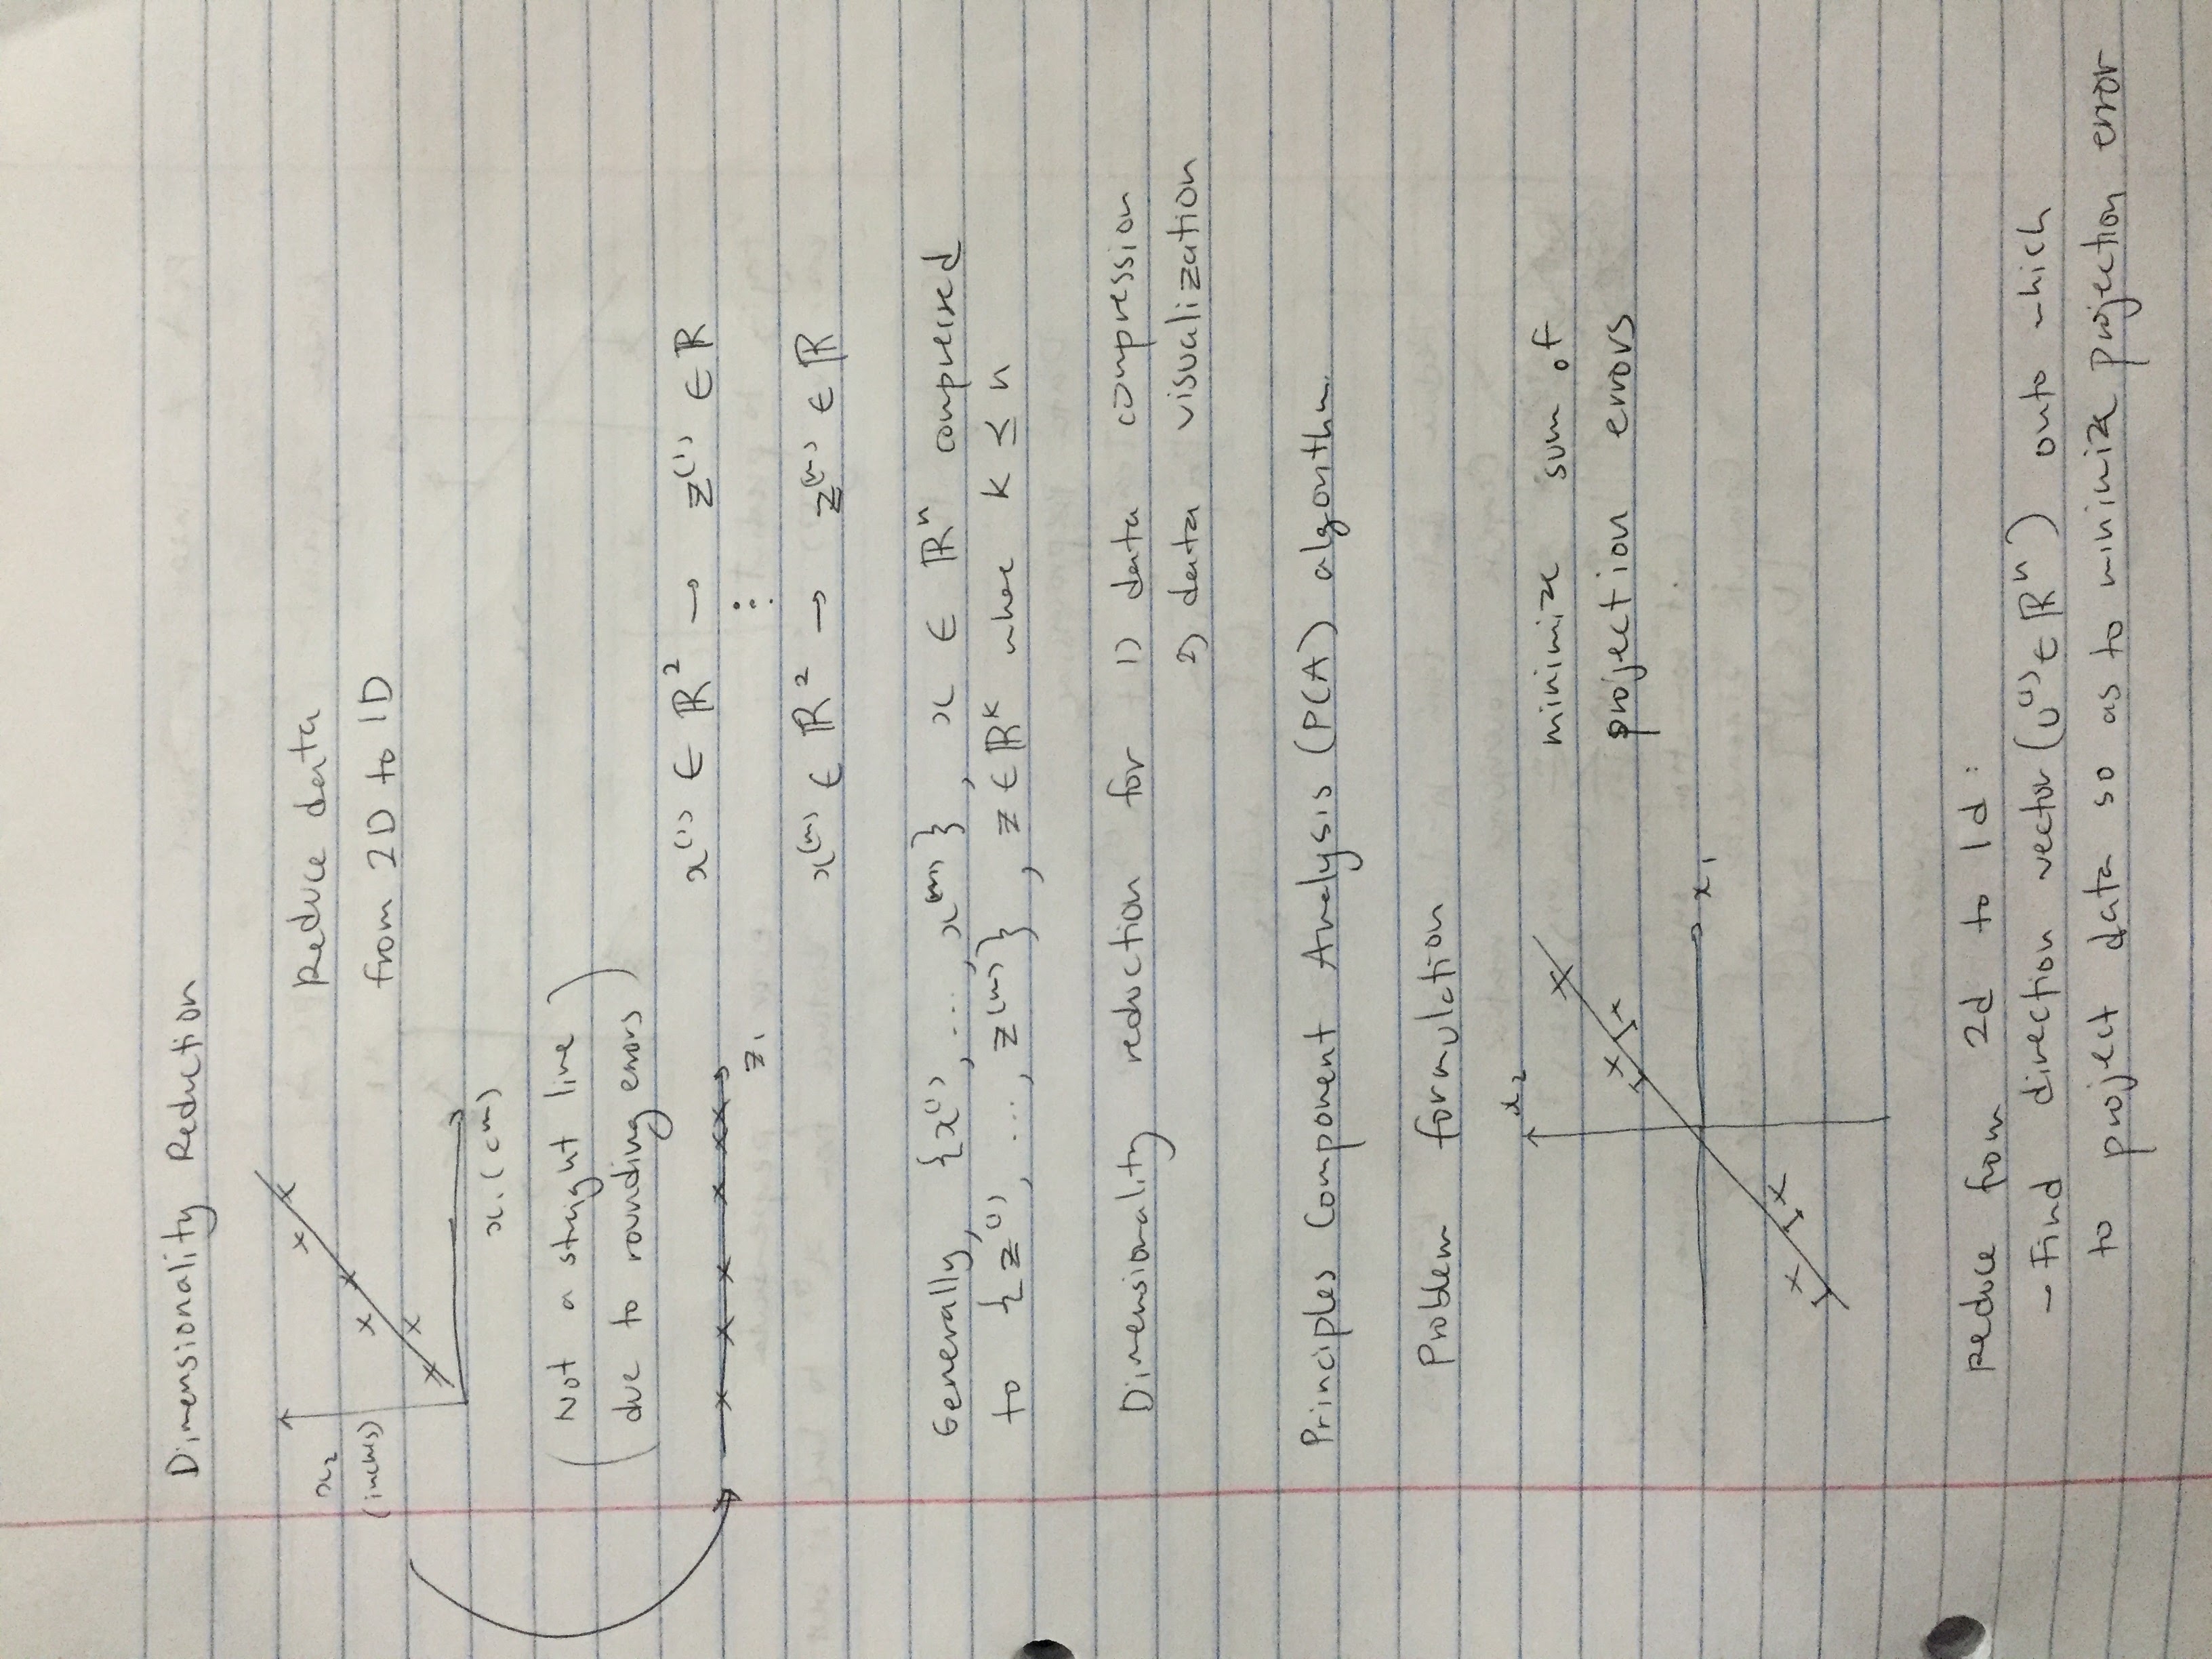 Dimensionality Reduction
x₂
(inches)
Reduce data
from 2D to 1D
x₁ (cm)
(Not a straight line
due to rounding errors)
x⁽¹⁾ ∈ ℝ² → z⁽¹⁾ ∈ ℝ
z₁
⋮
x⁽ᵐ⁾ ∈ ℝ² → z⁽ᵐ⁾ ∈ ℝ
Generally, {x⁽¹⁾, ..., x⁽ᵐ⁾}, x ∈ ℝⁿ compressed
to {z⁽¹⁾, ..., z⁽ᵐ⁾}, z ∈ ℝᴷ where K ≤ n
Dimensionality reduction for 1) data compression
2) data visualization
Principles Component Analysis (PCA) algorithm
Problem formulation
x₂
minimize sum of
projection errors
x₁
Reduce from 2d to 1d:
- Find direction vector (u⁽¹⁾ ∈ ℝⁿ) onto which
to project data so as to minimize projection error